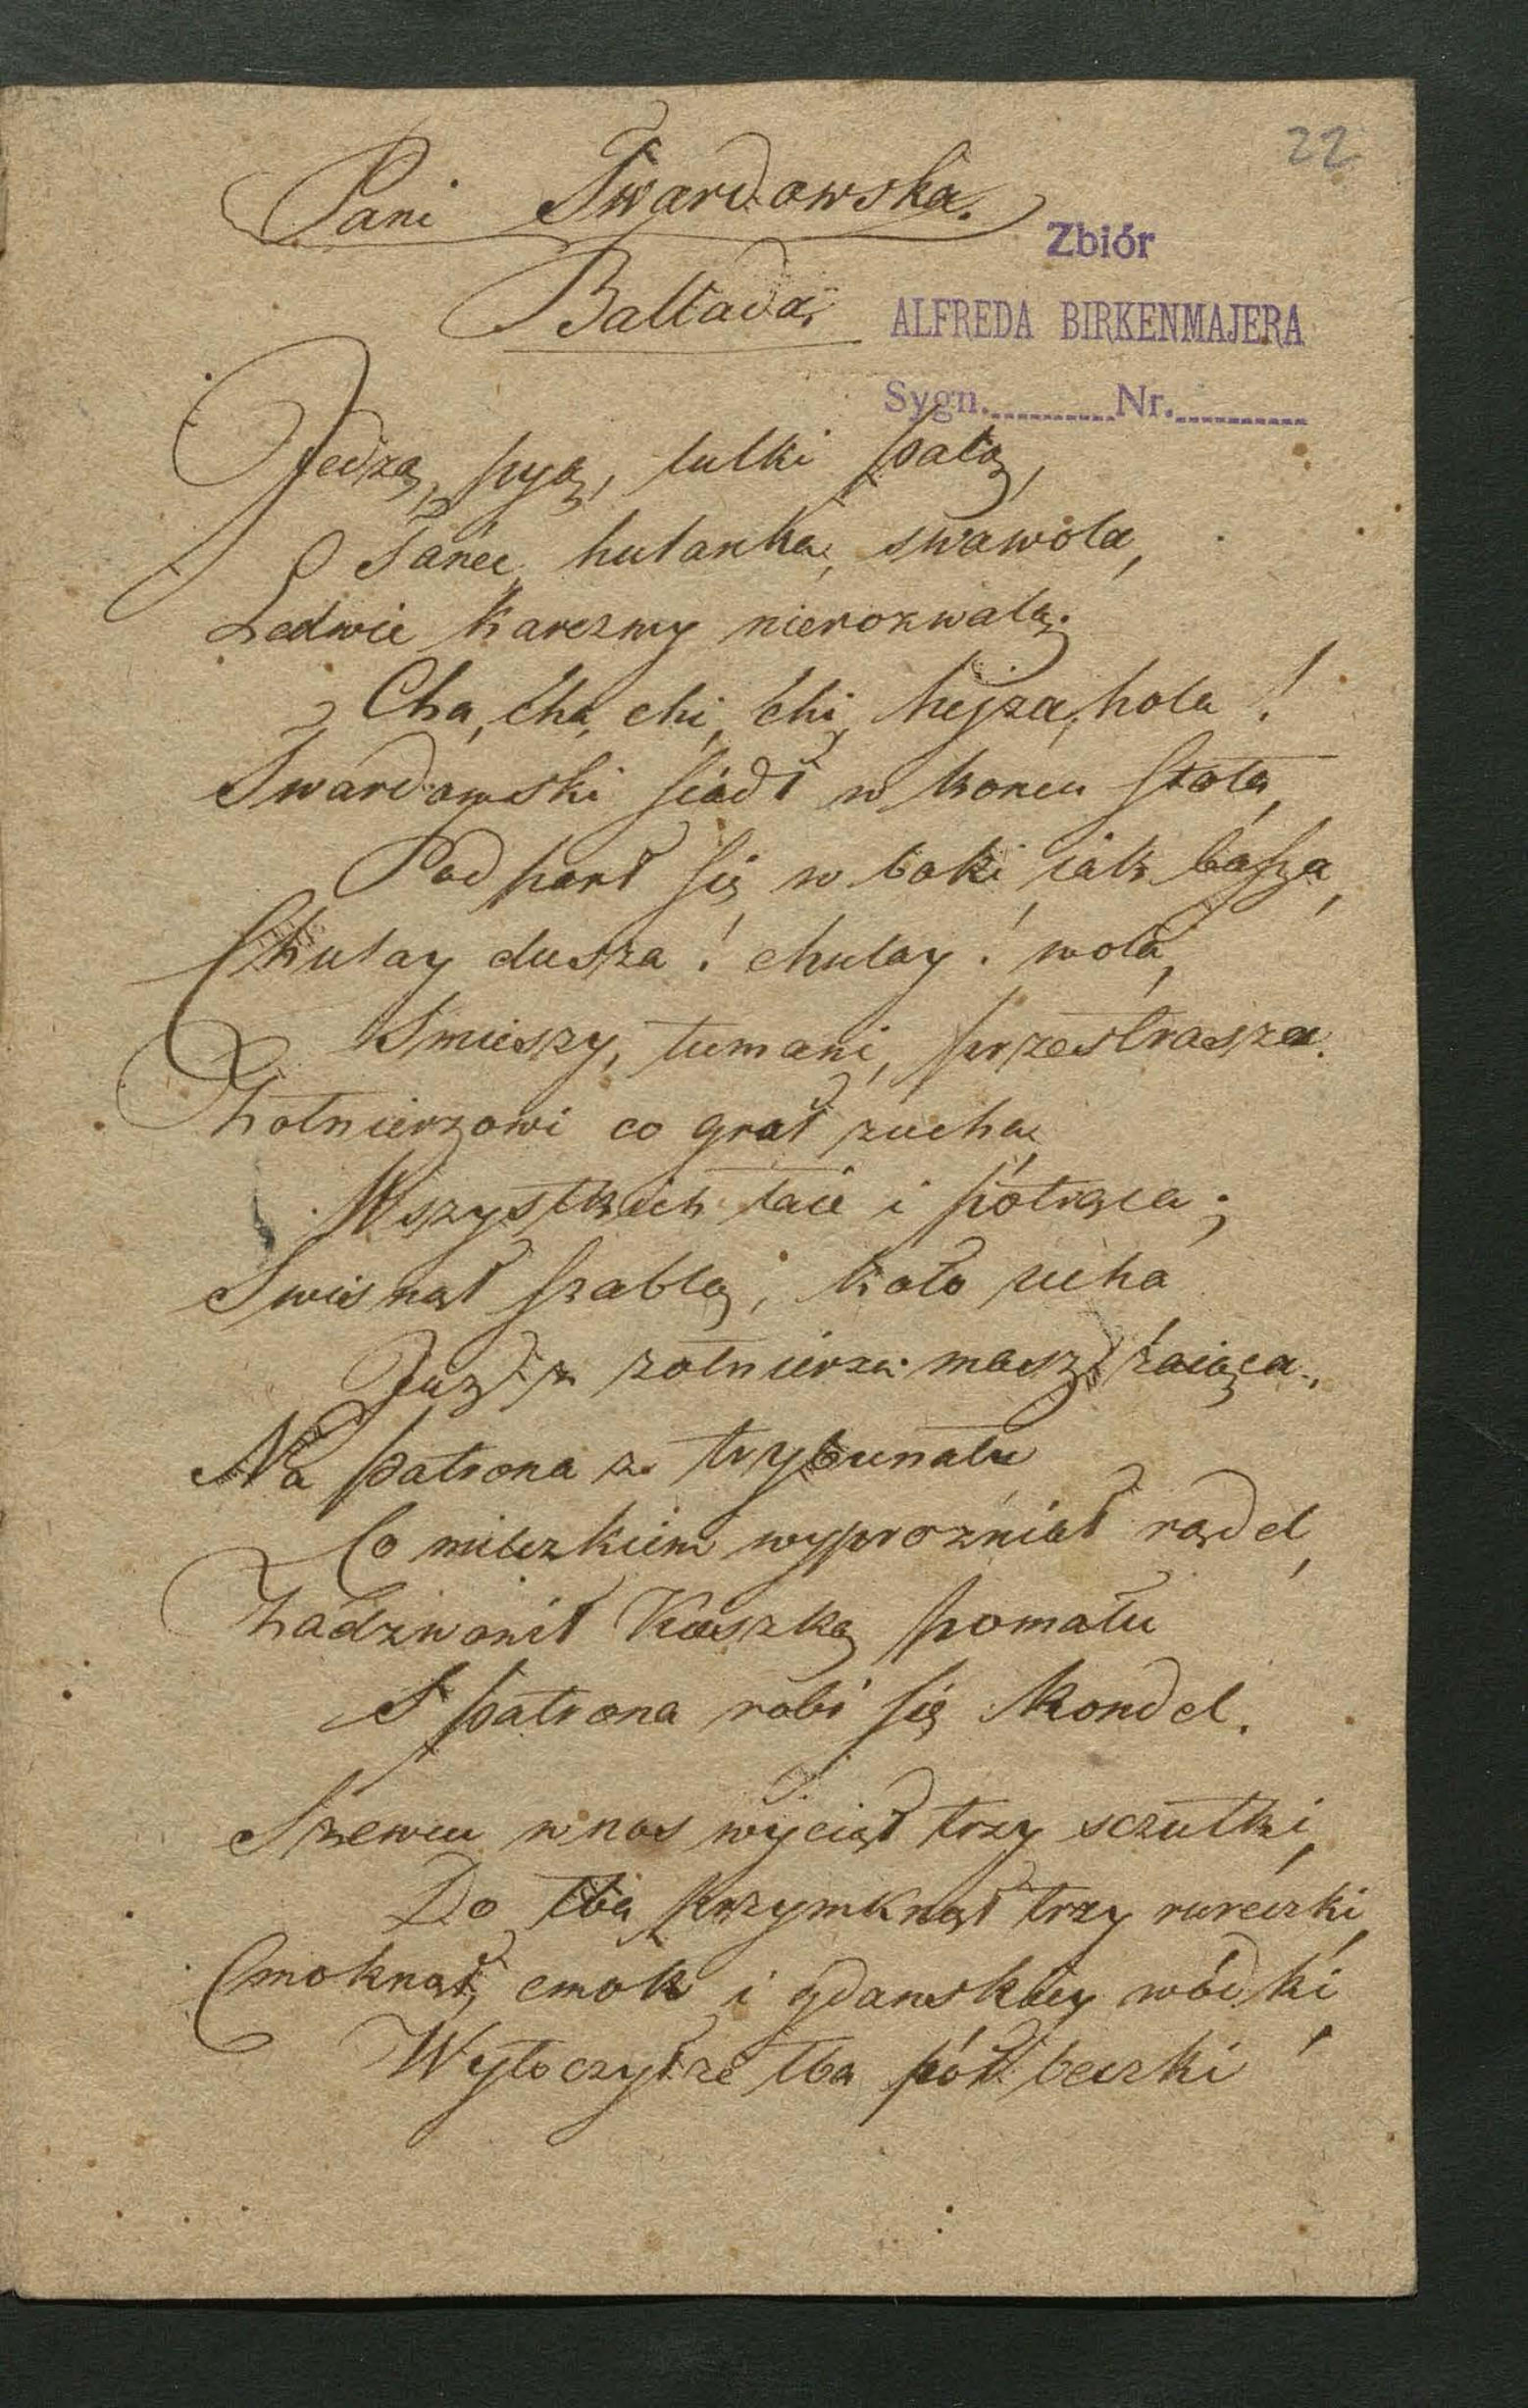 22
Pani Twardowska.
Zbiór
Ballada,
ALFREDA BIRKENMAJERA
Sygn. Nr.
Jedzą, pyą, lulki palą,
Taniec, hulanka, swawola,
Ledwie karczmy nierozwalą.
Cha, cha, chi, chi, hejza, hola!
Twardowski siadł w koncu stola,
Podparł się w boki, iak basza,
Chulay dusza! chulay! woła,
Smieszy, tumani, przestrasza.
Żołnierzowi co grał zucha,
Wszystkich łaie i pótrąca;
Swisnął szablą, koło ucha
Już z żołnierza masz zaiąca.
Na patrona z trybunału
Co milczkiem wyprozniał rądel,
Zadzwonił Kaszką pomału
S patrona robi się Kondel.
Szewcu w nos wyciął trzy sczutki,
Do łba przymknął trzy rureczki,
Cmoknął, cmok i gdanskiey wódki
Wytoczył ze łba pół beczki